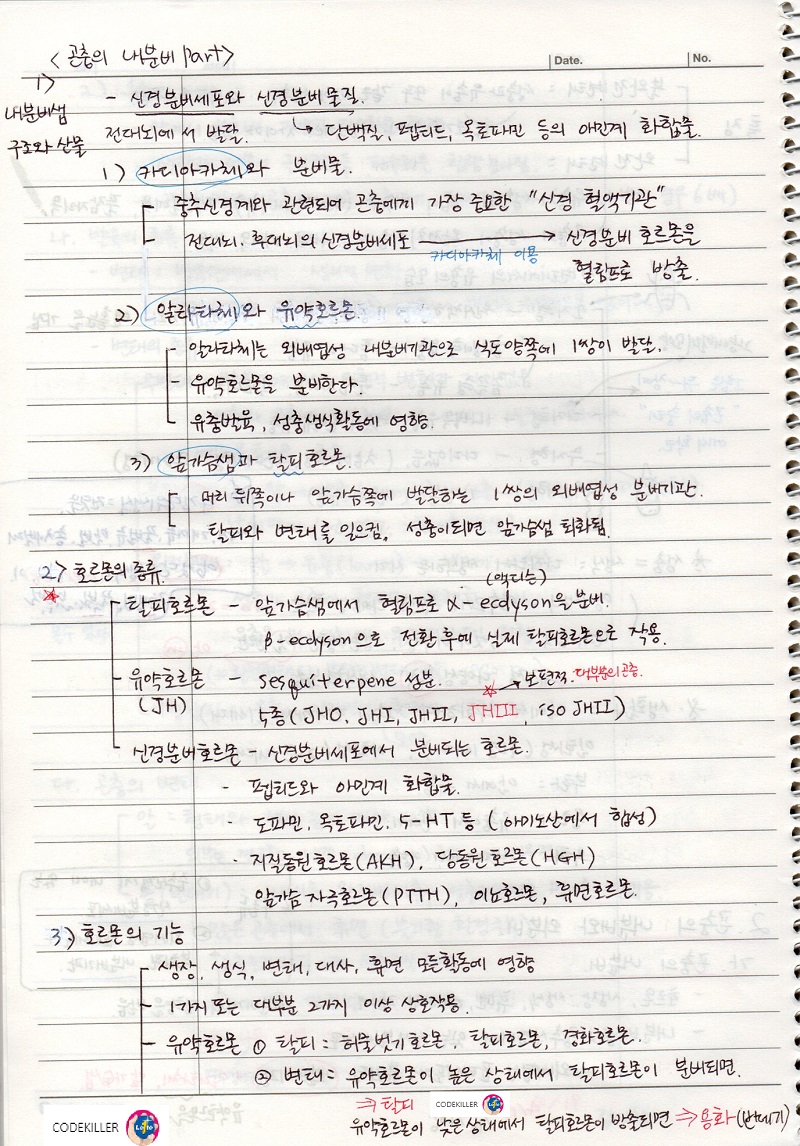 <곤충의 내분비 Part>
Date.
No.
1>
내분비샘
구조와 산물
- 신경분비세포와 신경분비물질.
전대뇌에서 발달. ↳ 단백질, 펩티드, 옥토파민 등의 아민계 화합물.
1) 카디아카체와 분비물.
- 중추신경계와 관련되어 곤충에게 가장 중요한 "신경 혈액기관"
- 전대뇌, 후대뇌의 신경분비세포 → 신경분비 호르몬을
카디아카체 이용
혈림프로 방출.
2) 알라타체와 유약호르몬.
- 알라타체는 외배엽성 내분비기관으로 식도양쪽에 1쌍이 발달.
- 유약호르몬을 분비한다.
- 유충발육, 성충생식활동에 영향.
3) 앞가슴샘과 탈피호르몬.
- 머리 뒤쪽이나 앞가슴쪽에 발달하는 1쌍의 외배엽성 분비기관.
- 탈피와 변태를 일으킴, 성충이되면 앞가슴샘 퇴화됨.
2> 호르몬의 종류.
(엑디손)
탈피호르몬 - 앞가슴샘에서 혈림프로 α-ecdyson을 분비.
β-ecdyson으로 전환 후에 실제 탈피호르몬으로 작용.
유약호르몬 - sesquiterpene 성분. → 보편적. 대부분의 곤충.
(JH) 5종(JHO, JHI, JHII, JHIII, iso JHII)
신경분비호르몬 - 신경분비세포에서 분비되는 호르몬.
- 펩티드와 아민계 화합물.
- 도파민, 옥토파민, 5-HT 등 (아미노산에서 합성)
- 지질동원호르몬(AKH), 당동원호르몬(HGH)
앞가슴자극호르몬(PTTH), 이뇨호르몬, 휴면호르몬.
3> 호르몬의 기능
- 생장, 생식, 변태, 대사, 휴면 모든활동에 영향
- 1가지 또는 대부분 2가지 이상 상호작용.
- 유약호르몬 ① 탈피 : 허물벗기호르몬, 탈피호르몬, 경화호르몬.
② 변태 : 유약호르몬이 높은 상태에서 탈피호르몬이 분비되면.
⇒ 탈피
유약호르몬이 낮은 상태에서 탈피호르몬이 방출되면 ⇒ 용화 (번데기)
CODEKILLER
CODEKILLER